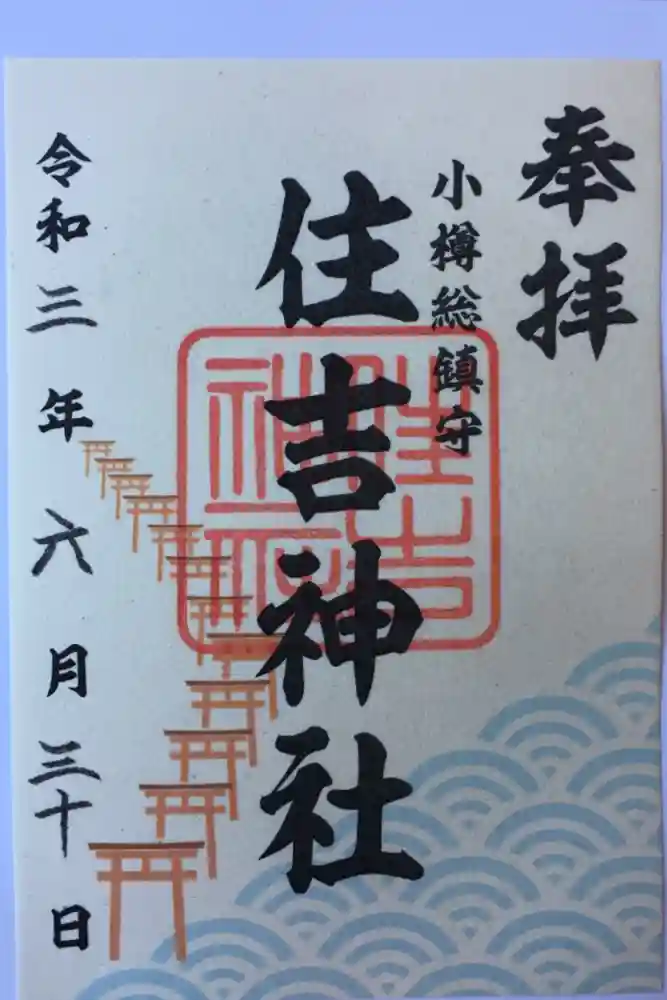 奉拝
小樽総鎮守
住吉神社
令和三年六月三十日